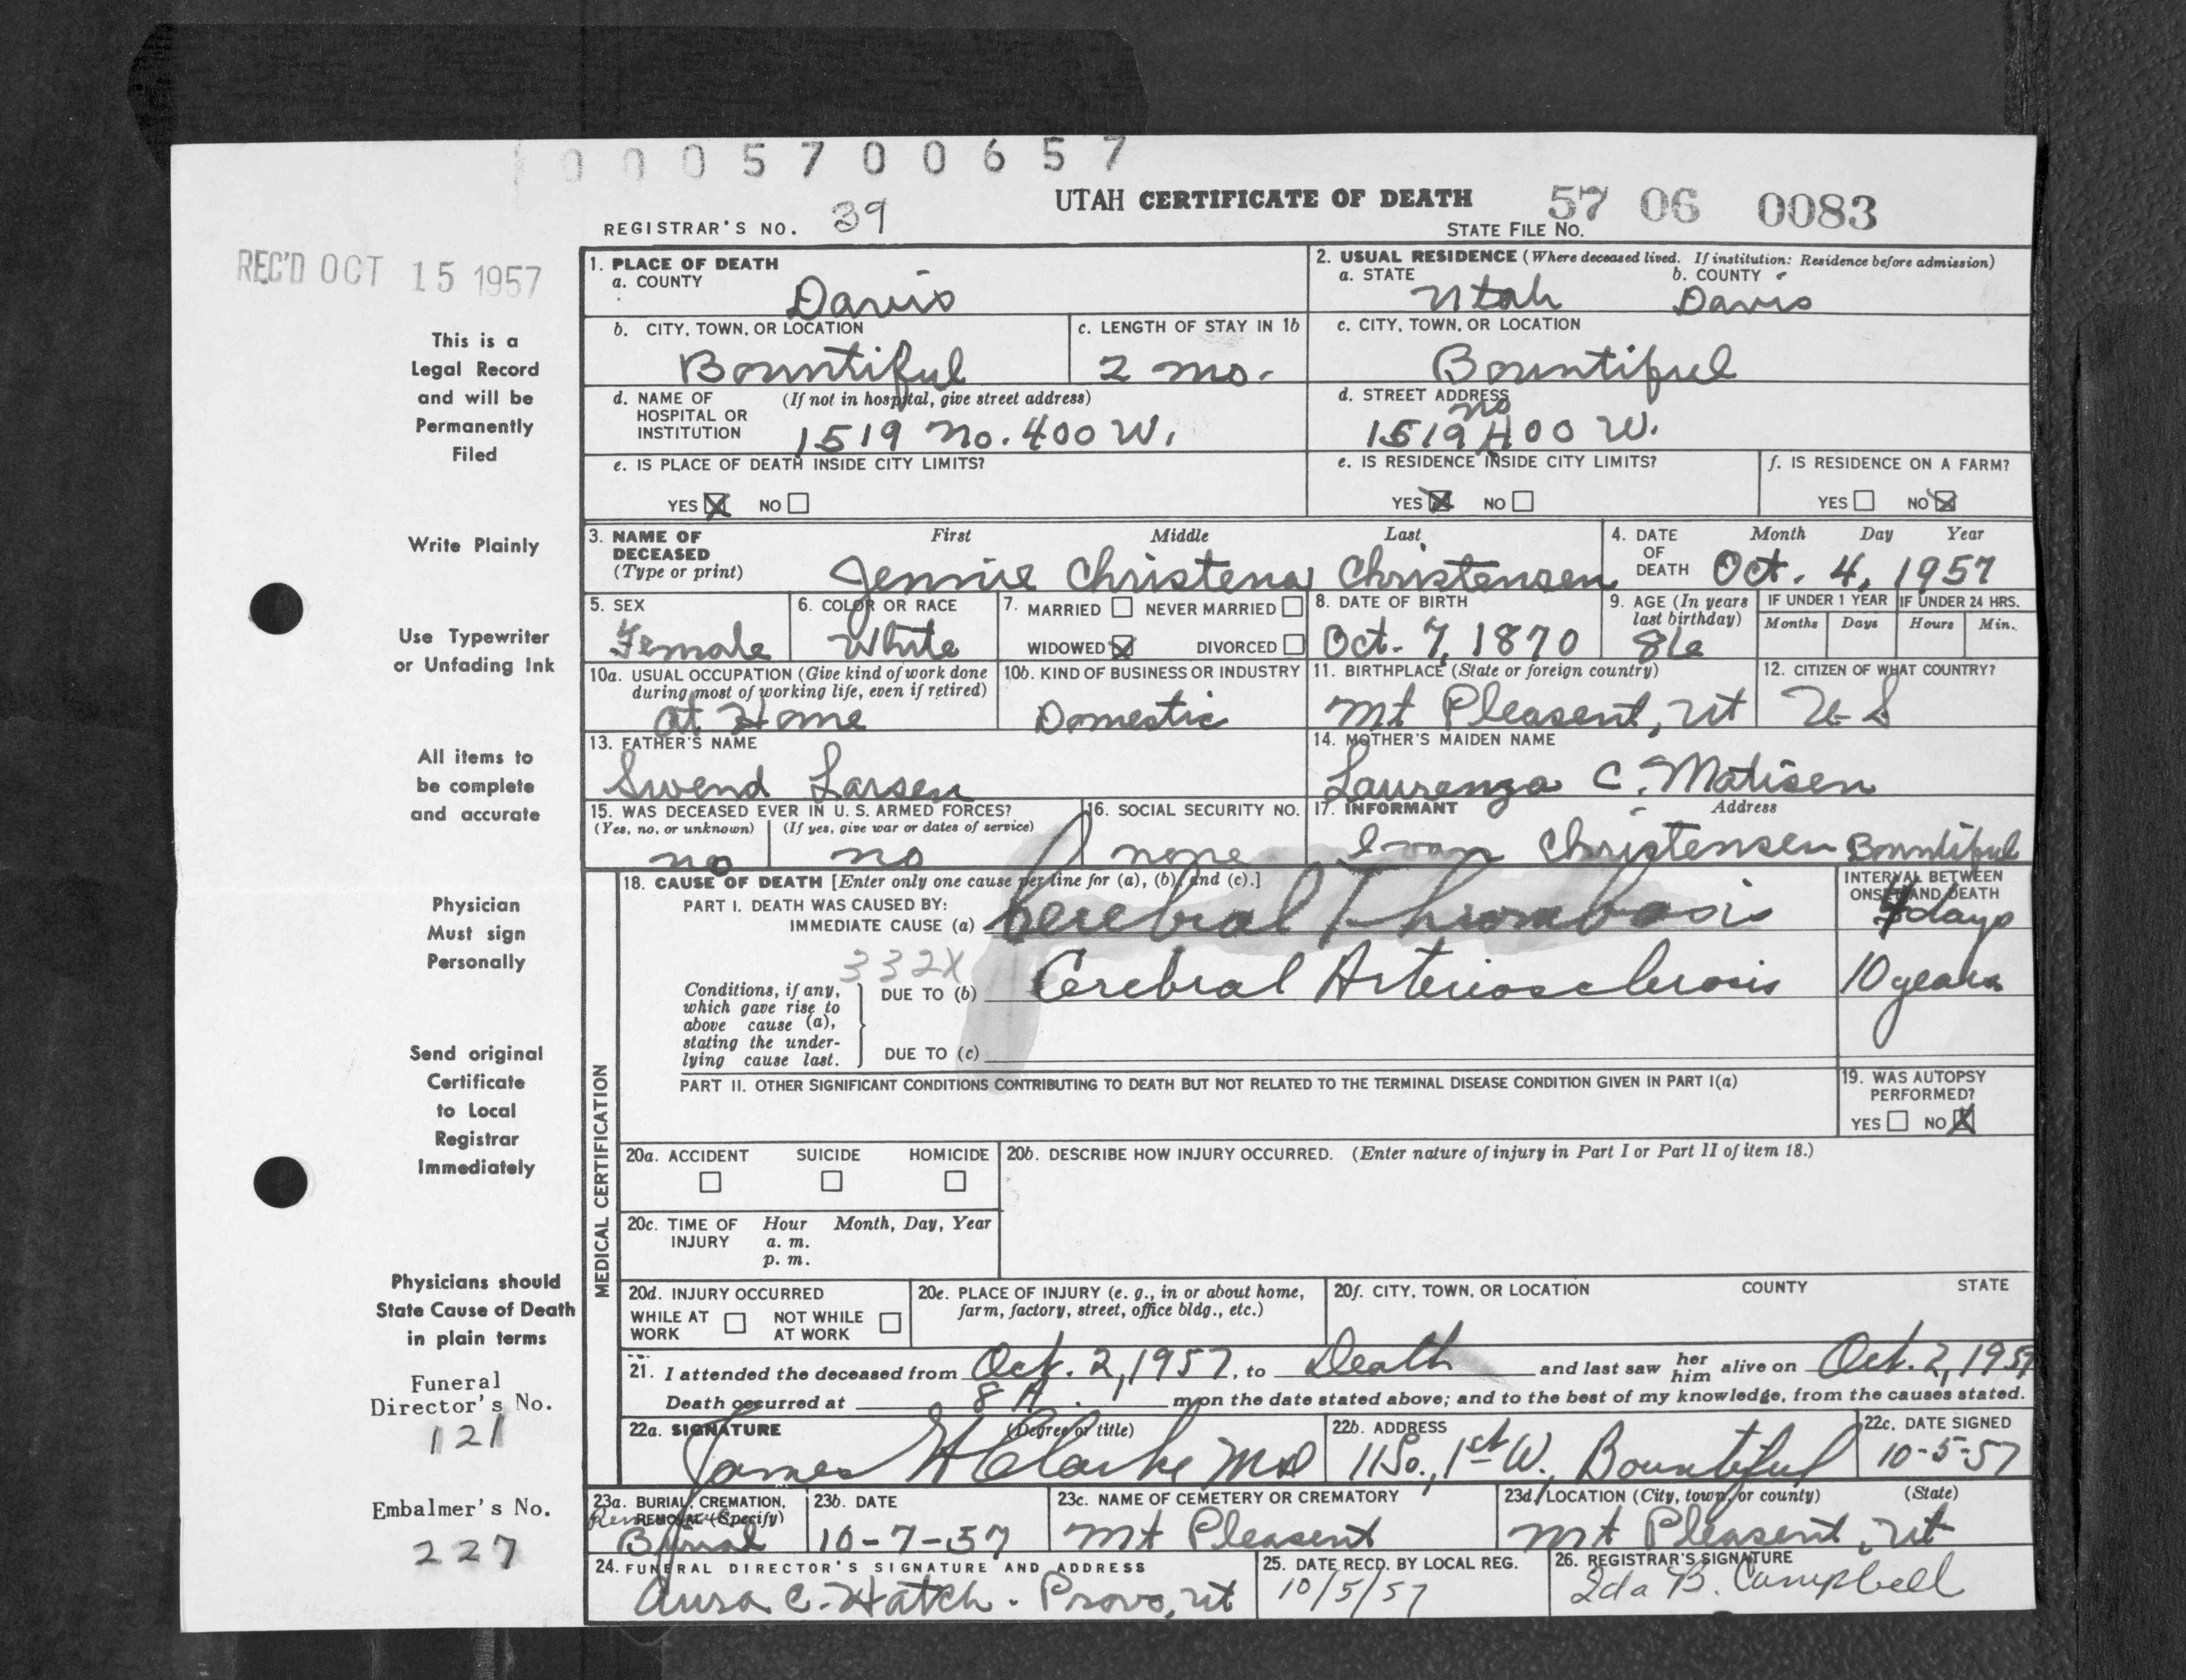 0005700657
UTAH CERTIFICATE OF DEATH 57 06 0083
REGISTRAR'S NO. 39 STATE FILE NO.
REC'D OCT 15 1957
This is a
Legal Record
and will be
Permanently
Filed
Write Plainly
Use Typewriter
or Unfading Ink
All items to
be complete
and accurate
Physician
Must sign
Personally
Send original
Certificate
to Local
Registrar
Immediately
Physicians should
State Cause of Death
in plain terms
Funeral
Director's No.
121
Embalmer's No.
227
1. PLACE OF DEATH
a. COUNTY
Davis
2. USUAL RESIDENCE (Where deceased lived. If institution: Residence before admission)
a. STATE b. COUNTY
Utah Davis
b. CITY, TOWN, OR LOCATION
Bountiful
c. LENGTH OF STAY IN 1b
2 mo.
c. CITY, TOWN, OR LOCATION
Bountiful
d. NAME OF (If not in hospital, give street address)
HOSPITAL OR
INSTITUTION 1519 No. 400 W.
d. STREET ADDRESS
no
1519 400 W.
e. IS PLACE OF DEATH INSIDE CITY LIMITS?
YES NO
e. IS RESIDENCE INSIDE CITY LIMITS?
YES NO
f. IS RESIDENCE ON A FARM?
YES NO
3. NAME OF First Middle Last
DECEASED
(Type or print) Jennie Christena Christensen
4. DATE Month Day Year
OF
DEATH Oct. 4, 1957
5. SEX
Female
6. COLOR OR RACE
White
7. MARRIED NEVER MARRIED
WIDOWED DIVORCED
8. DATE OF BIRTH
Oct. 7, 1870
9. AGE (In years
last birthday)
86
IF UNDER 1 YEAR IF UNDER 24 HRS.
Months Days Hours Min.
10a. USUAL OCCUPATION (Give kind of work done
during most of working life, even if retired)
at Home
10b. KIND OF BUSINESS OR INDUSTRY
Domestic
11. BIRTHPLACE (State or foreign country)
Mt Pleasent, Ut
12. CITIZEN OF WHAT COUNTRY?
U S
13. FATHER'S NAME
Swend Larsen
14. MOTHER'S MAIDEN NAME
Laurenza C. Matisen
15. WAS DECEASED EVER IN U. S. ARMED FORCES?
(Yes, no, or unknown) (If yes, give war or dates of service)
no no
16. SOCIAL SECURITY NO.
none
17. INFORMANT Address
Ivan Christensen Bountiful
MEDICAL CERTIFICATION
18. CAUSE OF DEATH [Enter only one cause per line for (a), (b), and (c).]
PART I. DEATH WAS CAUSED BY:
IMMEDIATE CAUSE (a) Cerebral Thrombosis
332X
Conditions, if any,
which gave rise to
above cause (a),
stating the under-
lying cause last.
DUE TO (b) Cerebral Arteriosclerosis
DUE TO (c)
INTERVAL BETWEEN
ONSET AND DEATH
4 days
10 years
PART II. OTHER SIGNIFICANT CONDITIONS CONTRIBUTING TO DEATH BUT NOT RELATED TO THE TERMINAL DISEASE CONDITION GIVEN IN PART I(a)
19. WAS AUTOPSY
PERFORMED?
YES NO
20a. ACCIDENT SUICIDE HOMICIDE
20b. DESCRIBE HOW INJURY OCCURRED. (Enter nature of injury in Part I or Part II of item 18.)
20c. TIME OF Hour Month, Day, Year
INJURY a. m.
p. m.
20d. INJURY OCCURRED
WHILE AT NOT WHILE
WORK AT WORK
20e. PLACE OF INJURY (e. g., in or about home,
farm, factory, street, office bldg., etc.)
20f. CITY, TOWN, OR LOCATION COUNTY STATE
21. I attended the deceased from Oct. 2, 1957, to Death and last saw her him alive on Oct. 2, 1957
Death occurred at 8 A. m on the date stated above; and to the best of my knowledge, from the causes stated.
22a. SIGNATURE (Degree or title)
James H Clarke MD
22b. ADDRESS
11 So., 1st W., Bountiful
22c. DATE SIGNED
10-5-57
23a. BURIAL, CREMATION,
REMOVAL (Specify)
Burial
23b. DATE
10-7-57
23c. NAME OF CEMETERY OR CREMATORY
Mt Pleasent
23d. LOCATION (City, town, or county) (State)
Mt Pleasent, Ut
24. FUNERAL DIRECTOR'S SIGNATURE AND ADDRESS
Aura C. Hatch. Provo, Ut
25. DATE RECD. BY LOCAL REG.
10/5/57
26. REGISTRAR'S SIGNATURE
Ida B. Campbell